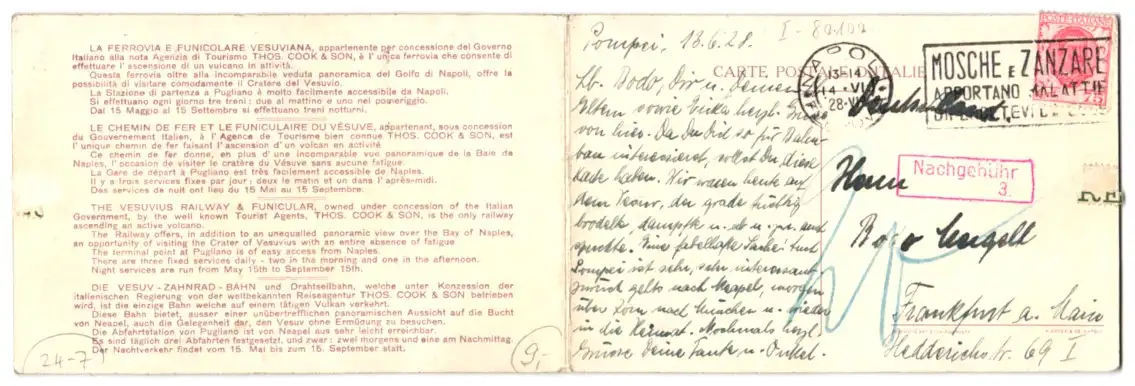 LA FERROVIA E FUNICOLARE VESUVIANA, appartenente per concessione del Governo
Italiano alla nota Agenzia di Tourismo THOS. COOK & SON, è l'unica ferrovia che consente di
effettuare l'ascensione di un vulcano in attività.
Questa ferrovia oltre alla incomparabile veduta panoramica del Golfo di Napoli, offre la
possibilità di visitare comodamente il Cratere del Vesuvio.
La Stazione di partenza a Pugliano è molto facilmente accessibile da Napoli.
Si effettuano ogni giorno tre treni: due al mattino e uno nel pomeriggio.
Dal 15 Maggio al 15 Settembre si effettuano treni notturni.
LE CHEMIN DE FER ET LE FUNICULAIRE DU VÉSUVE, appartenant, sous concession
du Gouvernement Italien, à l'Agence de Tourisme bien connue THOS. COOK & SON, est
l'unique chemin de fer faisant l'ascension d'un volcan en activité
Ce chemin de fer donne, en plus d'une incomparable vue panoramique de la Baie de
Naples, l'occasion de visiter le cratère du Vésuve sans aucune fatigue.
La Gare de départ à Pugliano est très facilement accessible de Naples.
Il y a trois services fixes par jour: deux le matin et un dans l'après-midi.
Des services de nuit ont lieu du 15 Mai au 15 Septembre.
THE VESUVIUS RAILWAY & FUNICULAR, owned under concession of the Italian
Government, by the well known Tourist Agents, THOS. COOK & SON, is the only railway
ascending an active volcano.
The Railway offers, in addition to an unequalled panoramic view over the Bay of Naples,
an opportunity of visiting the Crater of Vesuvius with an entire absence of fatigue
The terminal point at Pugliano is of easy access from Naples.
There are three fixed services daily - two in the morning and one in the afternoon.
Night services are run from May 15th to September 15th.
DIE VESUV-ZAHNRAD-BAHN und Drahtseilbahn, welche unter Konzession der
italienischen Regierung von der weltbekannten Reiseagentur THOS. COOK & SON betrieben
wird, ist die einzige Bahn welche auf einem tätigen Vulkan verkehrt.
Diese Bahn bietet, ausser einer unübertrefflichen panoramischen Aussicht auf die Bucht
von Neapel, auch die Gelegenheit dar, den Vesuv ohne Ermüdung zu besuchen.
Die Abfahrtstation von Pugliano ist von Neapel aus sehr leicht erreichbar.
Es sind täglich drei Abfahrten festgesetzt, und zwar: zwei morgens und eine am Nachmittag.
Der Nachtverkehr findet vom 15. Mai bis zum 15. September statt.
24-7
9,-
I - 80100
Pompei, 13.6.28.
Lb. Bodo, Dir u. Deinen
Eltern sowie herzl. Grüsse
von hier. Da Du Dich so für
interessierst, sollst Du diese
Karte haben. Wir waren heute auf
dem Vesuv, der grade tüchtig
brodelte, dampfte u.
spuckte. Eine fabelhafte Sache! Auch
Pompei ist sehr, sehr interessant.
Zurück gehts nach Neapel, morgen
über Rom nach München u. wieder
in die Heimat. Nochmals herzl.
Grüsse Deine Tante u. Onkel.
CARTE POSTALE D'ITALIE
POSTE ITALIANE
13-14
14-VI
28-VI
MOSCHE E ZANZARE
APPORTANO MALATTIE
Deutschland.
Nachgebühr
3.
Herrn
Bodo Engell
Frankfurt a. Main
Hedderichstr. 69 I